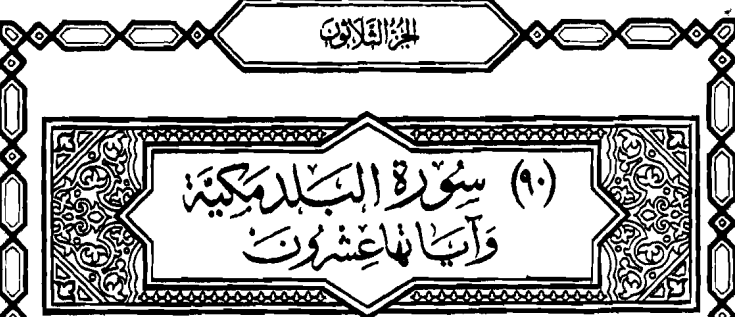 الجزء الثلاثون
(٩٠) سورة البلد مكية
وآياتها عشرون